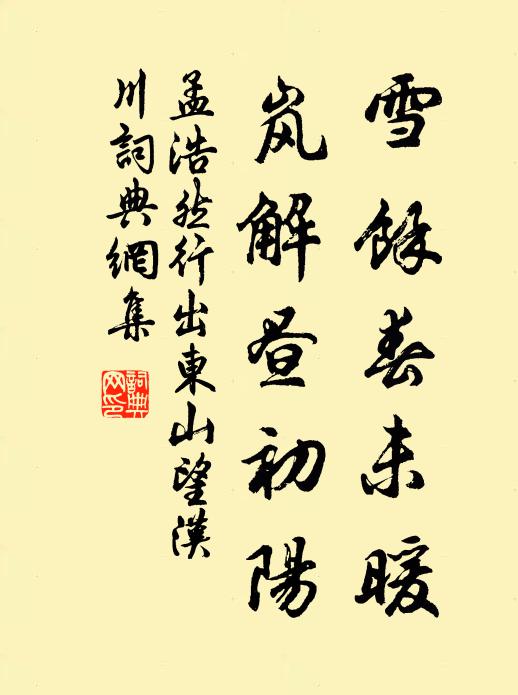 雪餘春未暖
岚解昼初陽
孟浩然行出東山望漢
川詞典網集
詞典
网印